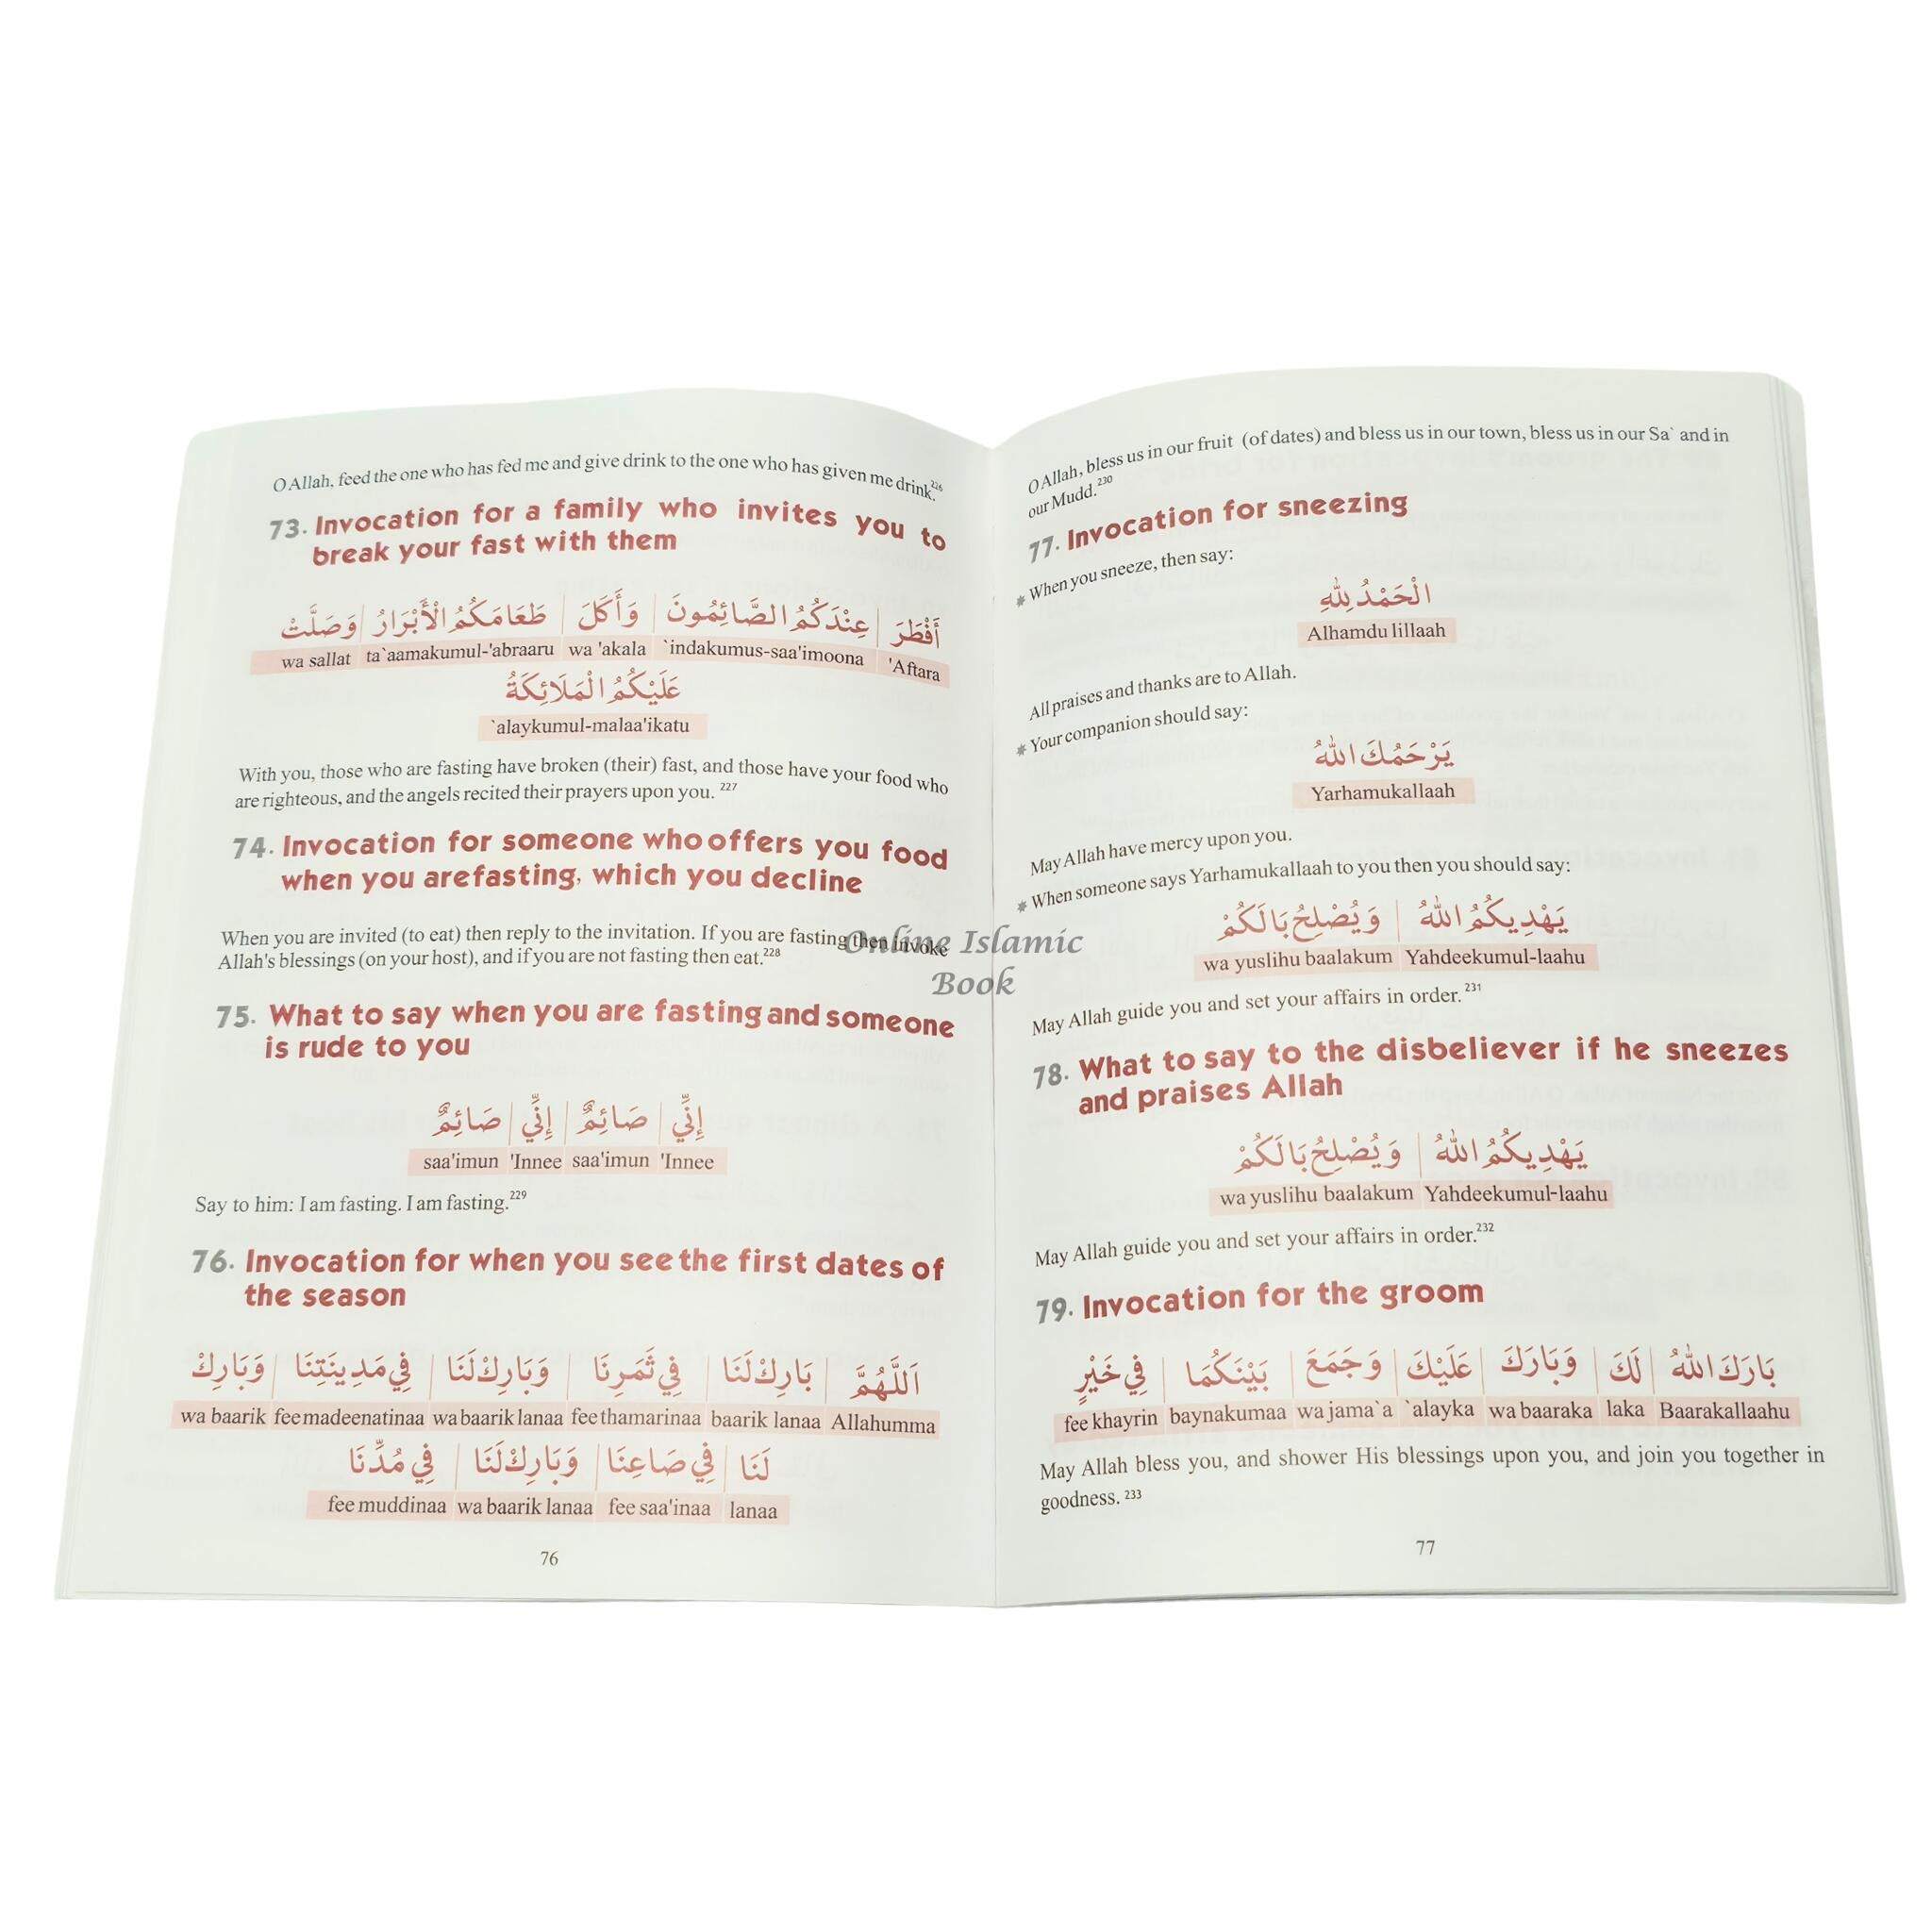 O Allah, feed the one who has fed me and give drink to the one who has given me drink.226
73. Invocation for a family who invites you to
break your fast with them
أَفْطَرَ عِنْدَكُمُ الصَّائِمُونَ وَأَكَلَ طَعَامَكُمُ الْأَبْرَارُ وَصَلَّتْ
wa sallat ta`aamakumul-'abraaru wa 'akala `indakumus-saa'imoona 'Aftara
عَلَيْكُمُ الْمَلَائِكَةُ
`alaykumul-malaa'ikatu
With you, those who are fasting have broken (their) fast, and those have your food who
are righteous, and the angels recited their prayers upon you. 227
74. Invocation for someone who offers you food
when you arefasting, which you decline
When you are invited (to eat) then reply to the invitation. If you are fasting then invoke
Allah's blessings (on your host), and if you are not fasting then eat.228
75. What to say when you are fasting and someone
is rude to you
إِنِّي صَائِمٌ إِنِّي صَائِمٌ
saa'imun 'Innee saa'imun 'Innee
Say to him: I am fasting. I am fasting.229
76. Invocation for when you see the first dates of
the season
اَللَّهُمَّ بَارِكْ لَنَا فِي ثَمَرِنَا وَبَارِكْ لَنَا فِي مَدِينَتِنَا وَبَارِكْ
wa baarik fee madeenatinaa wa baarik lanaa fee thamarinaa baarik lanaa Allahumma
لَنَا فِي صَاعِنَا وَبَارِكْ لَنَا فِي مُدِّنَا
fee muddinaa wa baarik lanaa fee saa'inaa lanaa
76
O Allah, bless us in our fruit (of dates) and bless us in our town, bless us in our Sa` and in
our Mudd.230
77. Invocation for sneezing
* When you sneeze, then say:
الْحَمْدُ لِلَّهِ
Alhamdu lillaah
All praises and thanks are to Allah.
* Your companion should say:
يَرْحَمُكَ اللهُ
Yarhamukallaah
May Allah have mercy upon you.
* When someone says Yarhamukallaah to you then you should say:
يَهْدِيكُمُ اللهُ وَيُصْلِحُ بَالَكُمْ
wa yuslihu baalakum Yahdeekumul-laahu
May Allah guide you and set your affairs in order.231
78. What to say to the disbeliever if he sneezes
and praises Allah
يَهْدِيكُمُ اللهُ وَيُصْلِحُ بَالَكُمْ
wa yuslihu baalakum Yahdeekumul-laahu
May Allah guide you and set your affairs in order.232
79. Invocation for the groom
بَارَكَ اللهُ لَكَ وَبَارَكَ عَلَيْكَ وَجَمَعَ بَيْنَكُمَا فِي خَيْرٍ
fee khayrin baynakumaa wa jama`a `alayka wa baaraka laka Baarakallaahu
May Allah bless you, and shower His blessings upon you, and join you together in
goodness. 233
77
Online Islamic
Book